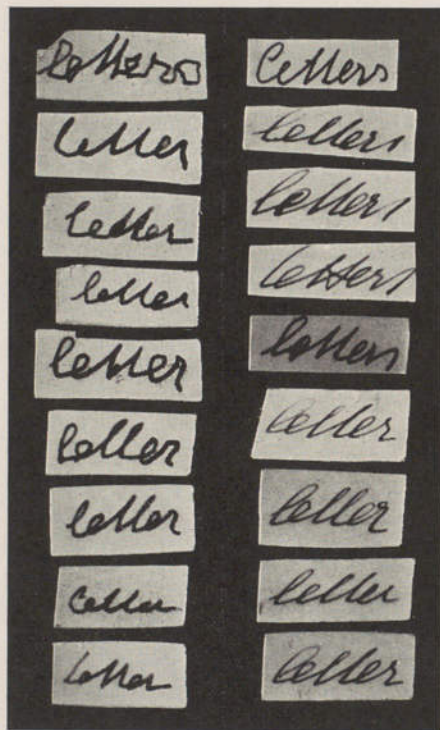 letters
letter
letter
letter
letter
letter
letter
letter
letter
letters
letters
letters
letters
letters
letter
letter
letter
letter